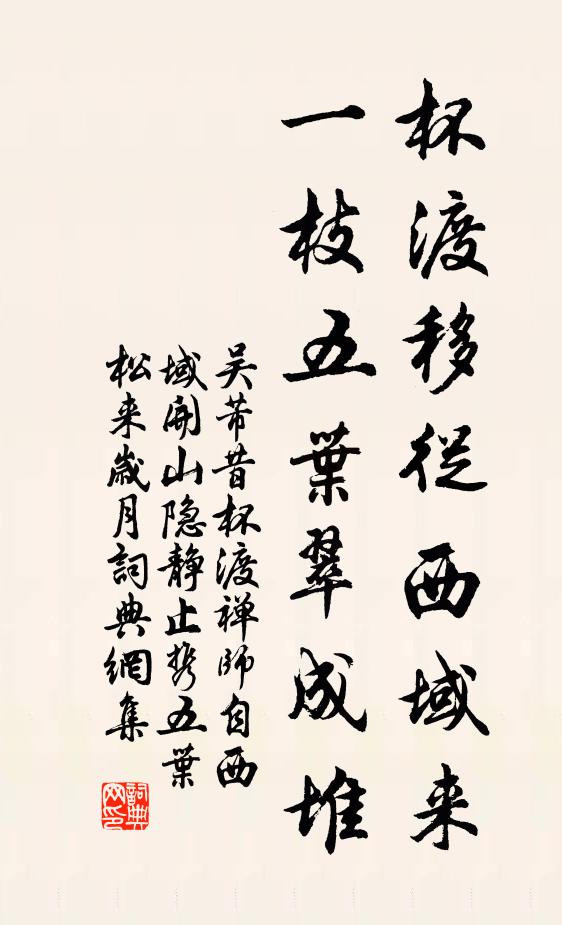 杯渡移从西域来
一枝五葉翠成堆
吴芾昔杯渡禅师自西
域開山隐静止携五葉
松来歲月詞典網集
詞典网印